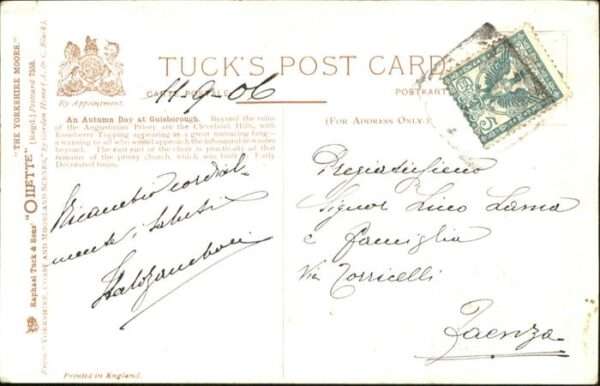 TUCK'S POST CARD
CARTE POSTALE
POSTKARTE
By Appointment.
11-9-06
(FOR ADDRESS ONLY.)
An Autumn Day at Guisborough. Beyond the ruins
of the Augustinian Priory are the Cleveland Hills, with
Roseberry Topping appearing as a great
warning to all who would approach the
beyond. The east end of the choir is practically all that
remains of the priory church, which was built in Early
Decorated times.
Ricambio cordial-
mente i saluti
Pregiatissimo
Signor Lino Lama
e famiglia
Via Torricelli
Faenza
Raphael Tuck & Sons' "OILETTE" [Regd.] Postcard
"THE YORKSHIRE MOORS."
From "YORKSHIRE, COAST AND MOORLAND SCENES," by Gordon Home (A. & C. Black).
Printed in England.